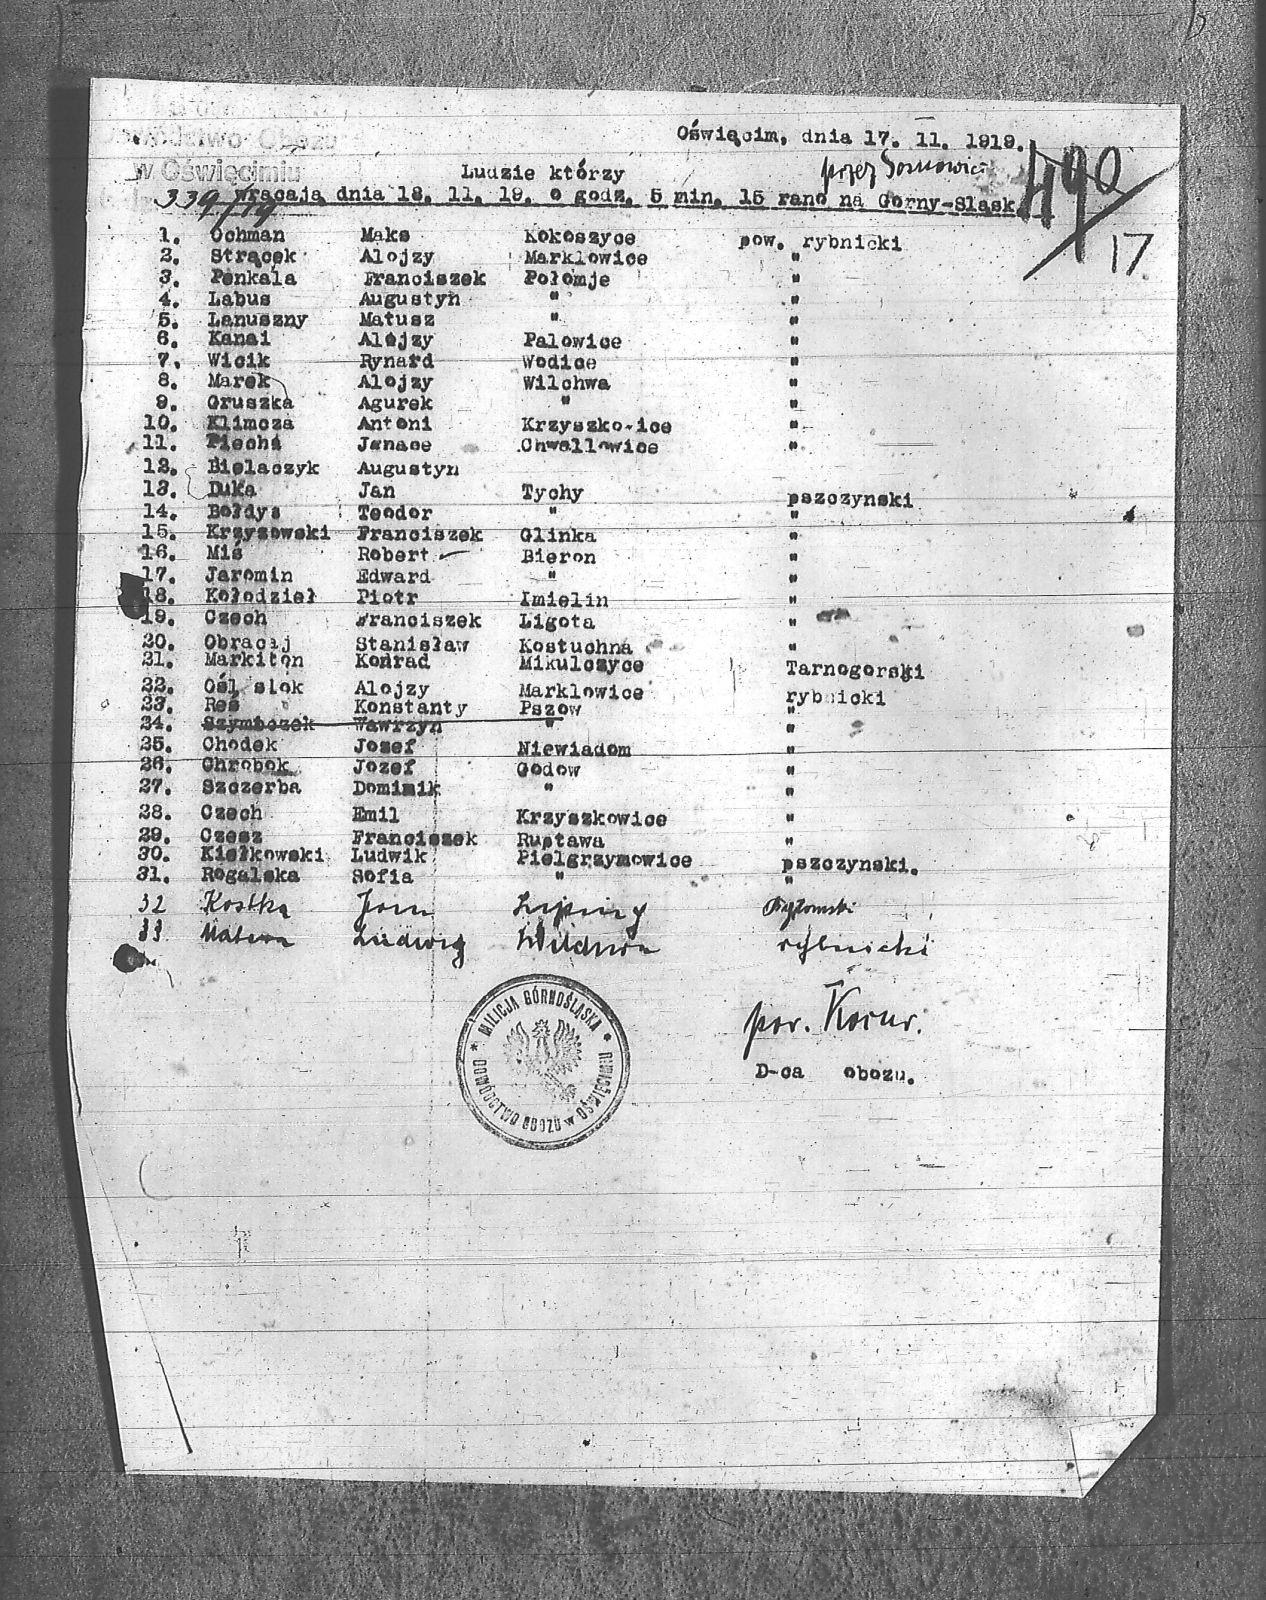 Dowództwo Obozu
w Oświęcimiu
339/19
Oświęcim, dnia 17. 11. 1919.
przez Sosnowice
490
17
Ludzie którzy
wracają dnia 18. 11. 19. o godz. 5 min. 15 rano na Gorny-Sląsk
1. Ochman Maks Kokoszyce pow. rybnicki
2. Strącek Alojzy Marklowice "
3. Penkala Franciszek Połomje "
4. Labus Augustyn " "
5. Lanuszny Matusz " "
6. Kanai Alojzy Palowice "
7. Wicik Rynard Wodice "
8. Marek Alojzy Wilchwa "
9. Gruszka Agurek " "
10. Klimcza Antoni Krzyszkowice "
11. Piecha Jgnace Chwallowice "
12. Bielaczyk Augustyn
13. Duka Jan Tychy pszczynski
14. Bołdys Teodor " "
15. Krzyzowski Franciszek Glinka "
16. Miś Robert Bieron "
17. Jaromin Edward " "
18. Kołodzieł Piotr Imielin "
19. Czech Franciszek Ligota "
20. Obracaj Stanisław Kostuchna "
21. Markiton Konrad Mikulczyce Tarnogorski
22. Alojzy Marklowice rybnicki
23. Reś Konstanty Pszow "
24. Szymiczek Wawrzyn " "
25. Chodek Jozef Niewiadom "
26. Chrobok Jozef Godow "
27. Szczerba Dominik " "
28. Czech Emil Krzyszkowice "
29. Czesz Franciszek Ruptawa "
30. Kiełkowski Ludwik Pielgrzymowice pszczynski.
31. Rogalska Sofia " "
32 Kostka Jan Lipiny Bytomski
33 Ludwig rybnicki
por. Kocur.
D-ca obozu.
* MILICJA GÓRNOŚLĄSKA *
DOWÓDCTWO OBOZU w OŚWIĘCIMIU